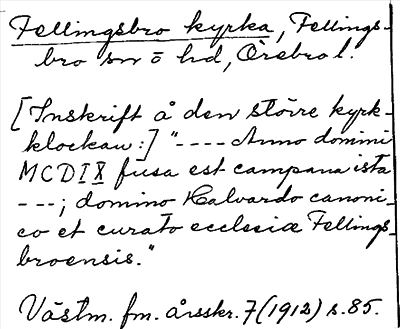 Fellingsbro kyrka, Fellings-
bro sn o hd, Örebro l.
[Inskrift å den större kyrk-
klockan:] "---- Anno domini
MCDIX fusa est campana ista
---; domino Halvardo canoni-
co et curato ecclesiæ Fellings-
broensis."
Västm. fm. årsskr. 7 (1912) s. 85.